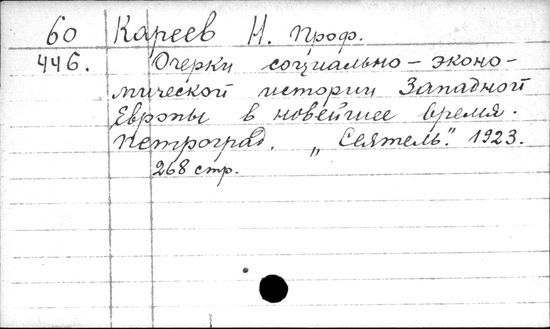 60 Кареев Н. Проф.
446. Очерки социально-эконо-
мической истории Западной
Европы в новейшее время.
Петроград. „Сеятель". 1923.
268 стр.